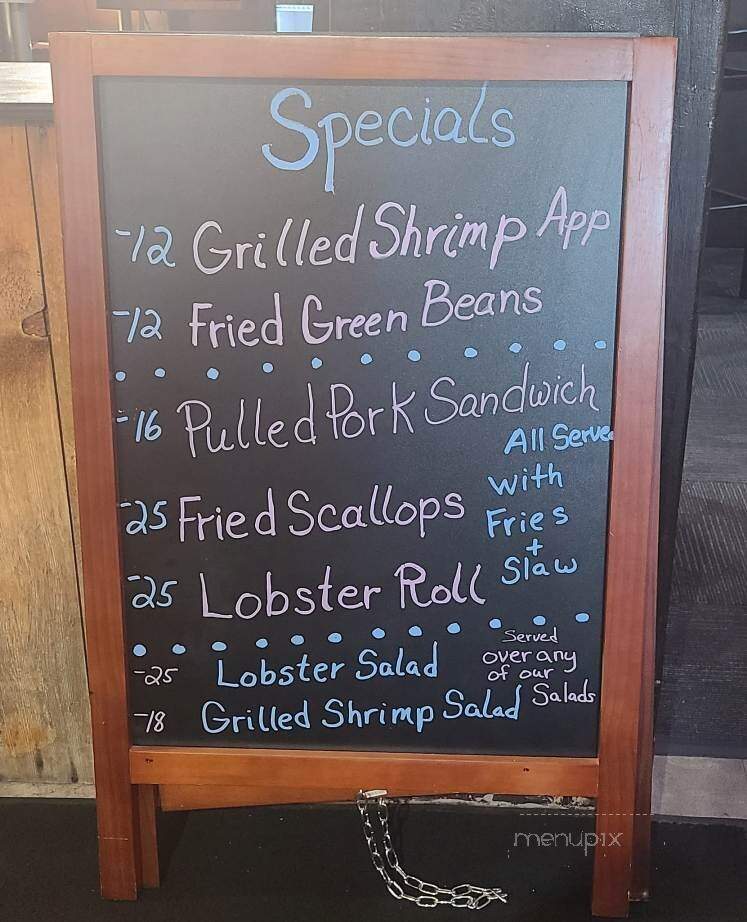 Specials
-12 Grilled Shrimp App
-12 Fried Green Beans
-16 Pulled Pork Sandwich
-25 Fried Scallops
-25 Lobster Roll
All Serve
with
Fries
+
Slaw
-25 Lobster Salad
-18 Grilled Shrimp Salad
Served
over any
of our
Salads
menupix